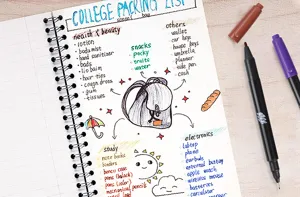 COLLEGE PACKING LIST
school bag
health & beauty
• lotion
• body mist
• hand sanitizer
• pads
• lip balm
• hair ties
• cough drops
• gum
• tissues
snacks
• pocky
• fruits
• water
others
wallet
umbrella
planner
cash
study
note books
binders
pencil case
pens (black)
pens (color)
mechanical pencil
electronics
laptop
phone
earbuds
external battery
apple watch
wireless mouse
batteries
calculator